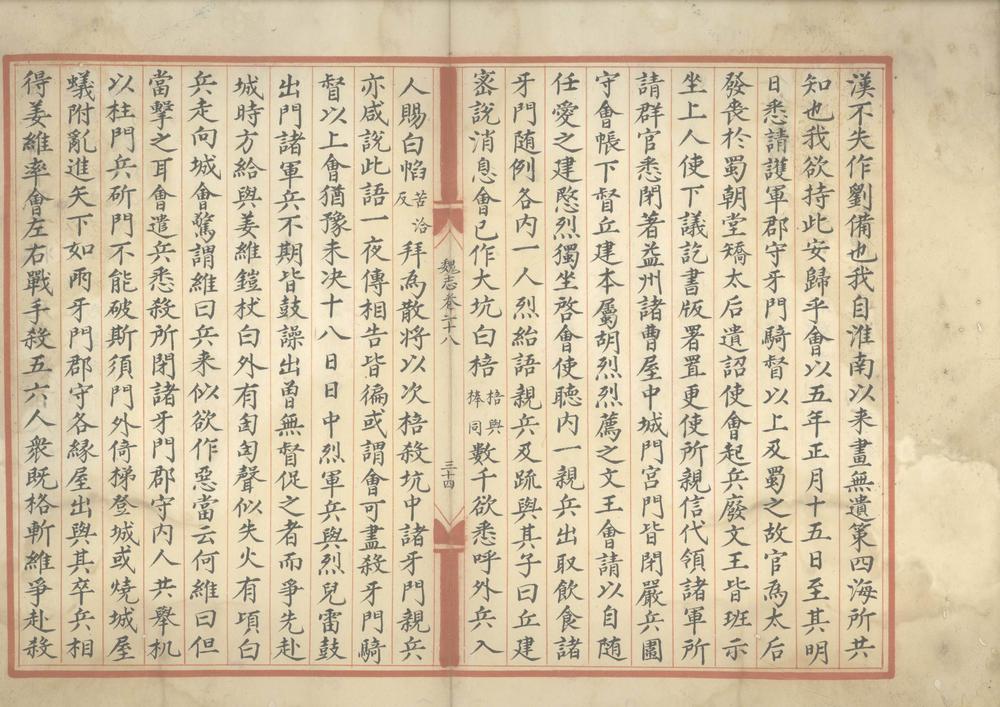 漢不失作劉備也我自淮南以来畫無遺策四海所共
知也我欲持此安歸乎會以五年正月十五日至其明
日悉請護軍郡守牙門騎督以上及蜀之故官為太后
發喪於蜀朝堂矯太后遺詔使會起兵廢文王皆班示
坐上人使下議訖書版署置更使所親信代領諸軍所
請群官悉閉著益州諸曹屋中城門宮門皆閉嚴兵圍
守會帳下督丘建本屬胡烈烈薦之文王會請以自随
任愛之建愍烈獨坐啓會使聽内一親兵出取飲食諸
牙門随例各内一人烈紿語親兵及疏與其子曰丘建
宻說消息會已作大坑白棓棓與棒同數千欲悉呼外兵入
魏志卷二十八
三十四
人賜白㡊苦洽反拜為散将以次棓殺坑中諸牙門親兵
亦咸說此語一夜傳相告皆徧或謂會可盡殺牙門騎
督以上會猶豫未决十八日日中烈軍兵與烈兒雷鼓
出門諸軍兵不期皆鼓譟出曽無督促之者而爭先赴
城時方給與姜維鎧杖白外有匈匈聲似失火有頃白
兵走向城會驚謂維曰兵来似欲作惡當云何維曰但
當擊之耳會遣兵悉殺所閉諸牙門郡守内人共舉机
以柱門兵斫門不能破斯須門外倚梯登城或燒城屋
蟻附亂進矢下如雨牙門郡守各縁屋出與其卒兵相
得姜維率會左右戰手殺五六人衆既格斬維爭赴殺